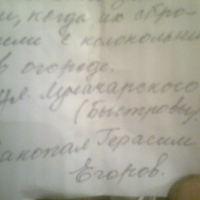 и, когда их сбро-
сили с колокольни
в огороде.
ул. Луначарского
(Быстровы
Закопал Герасим
Егоров.